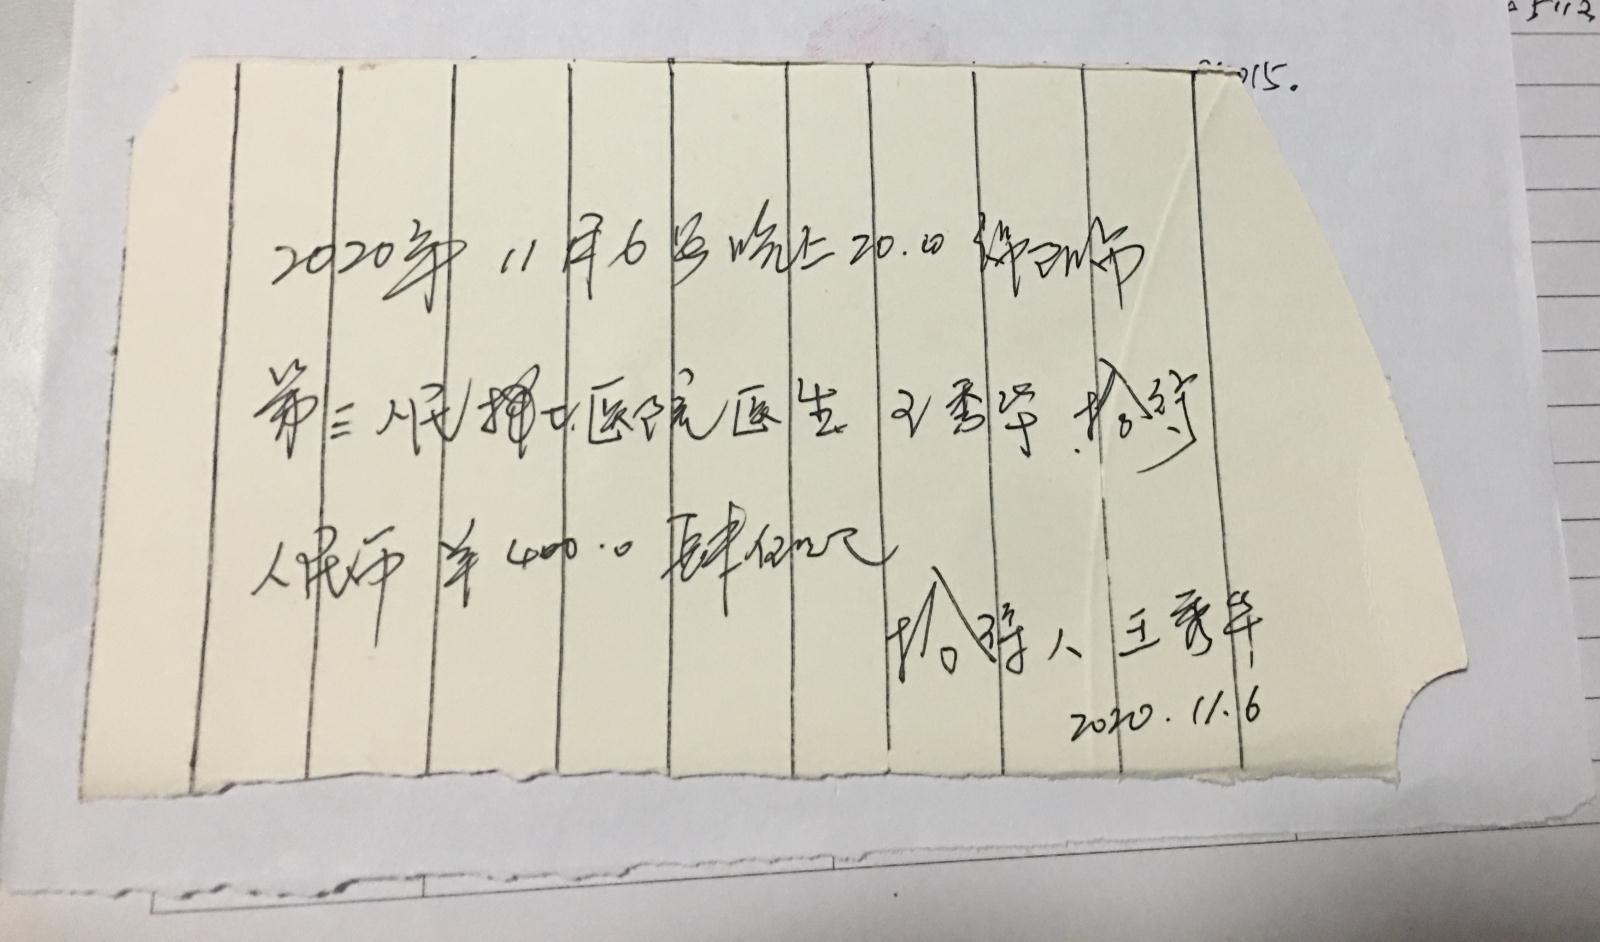 015.
2020年 11月6号晚上20.00
第三人民医院医生 王秀华 拾得
人民币 羊400.0 肆佰元
拾得人 王秀华
2020.11.6